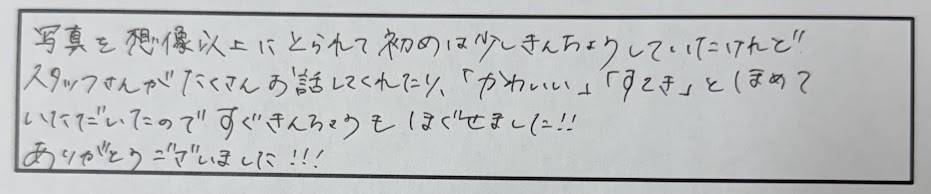 写真を想像以上にとられて初めは少しきんちょうしていたけれど
スタッフさんがたくさんお話してくれたり、「かわいい」「すてき」とほめて
いただいたのですぐきんちょうもほぐせました!!
ありがとうございました!!!